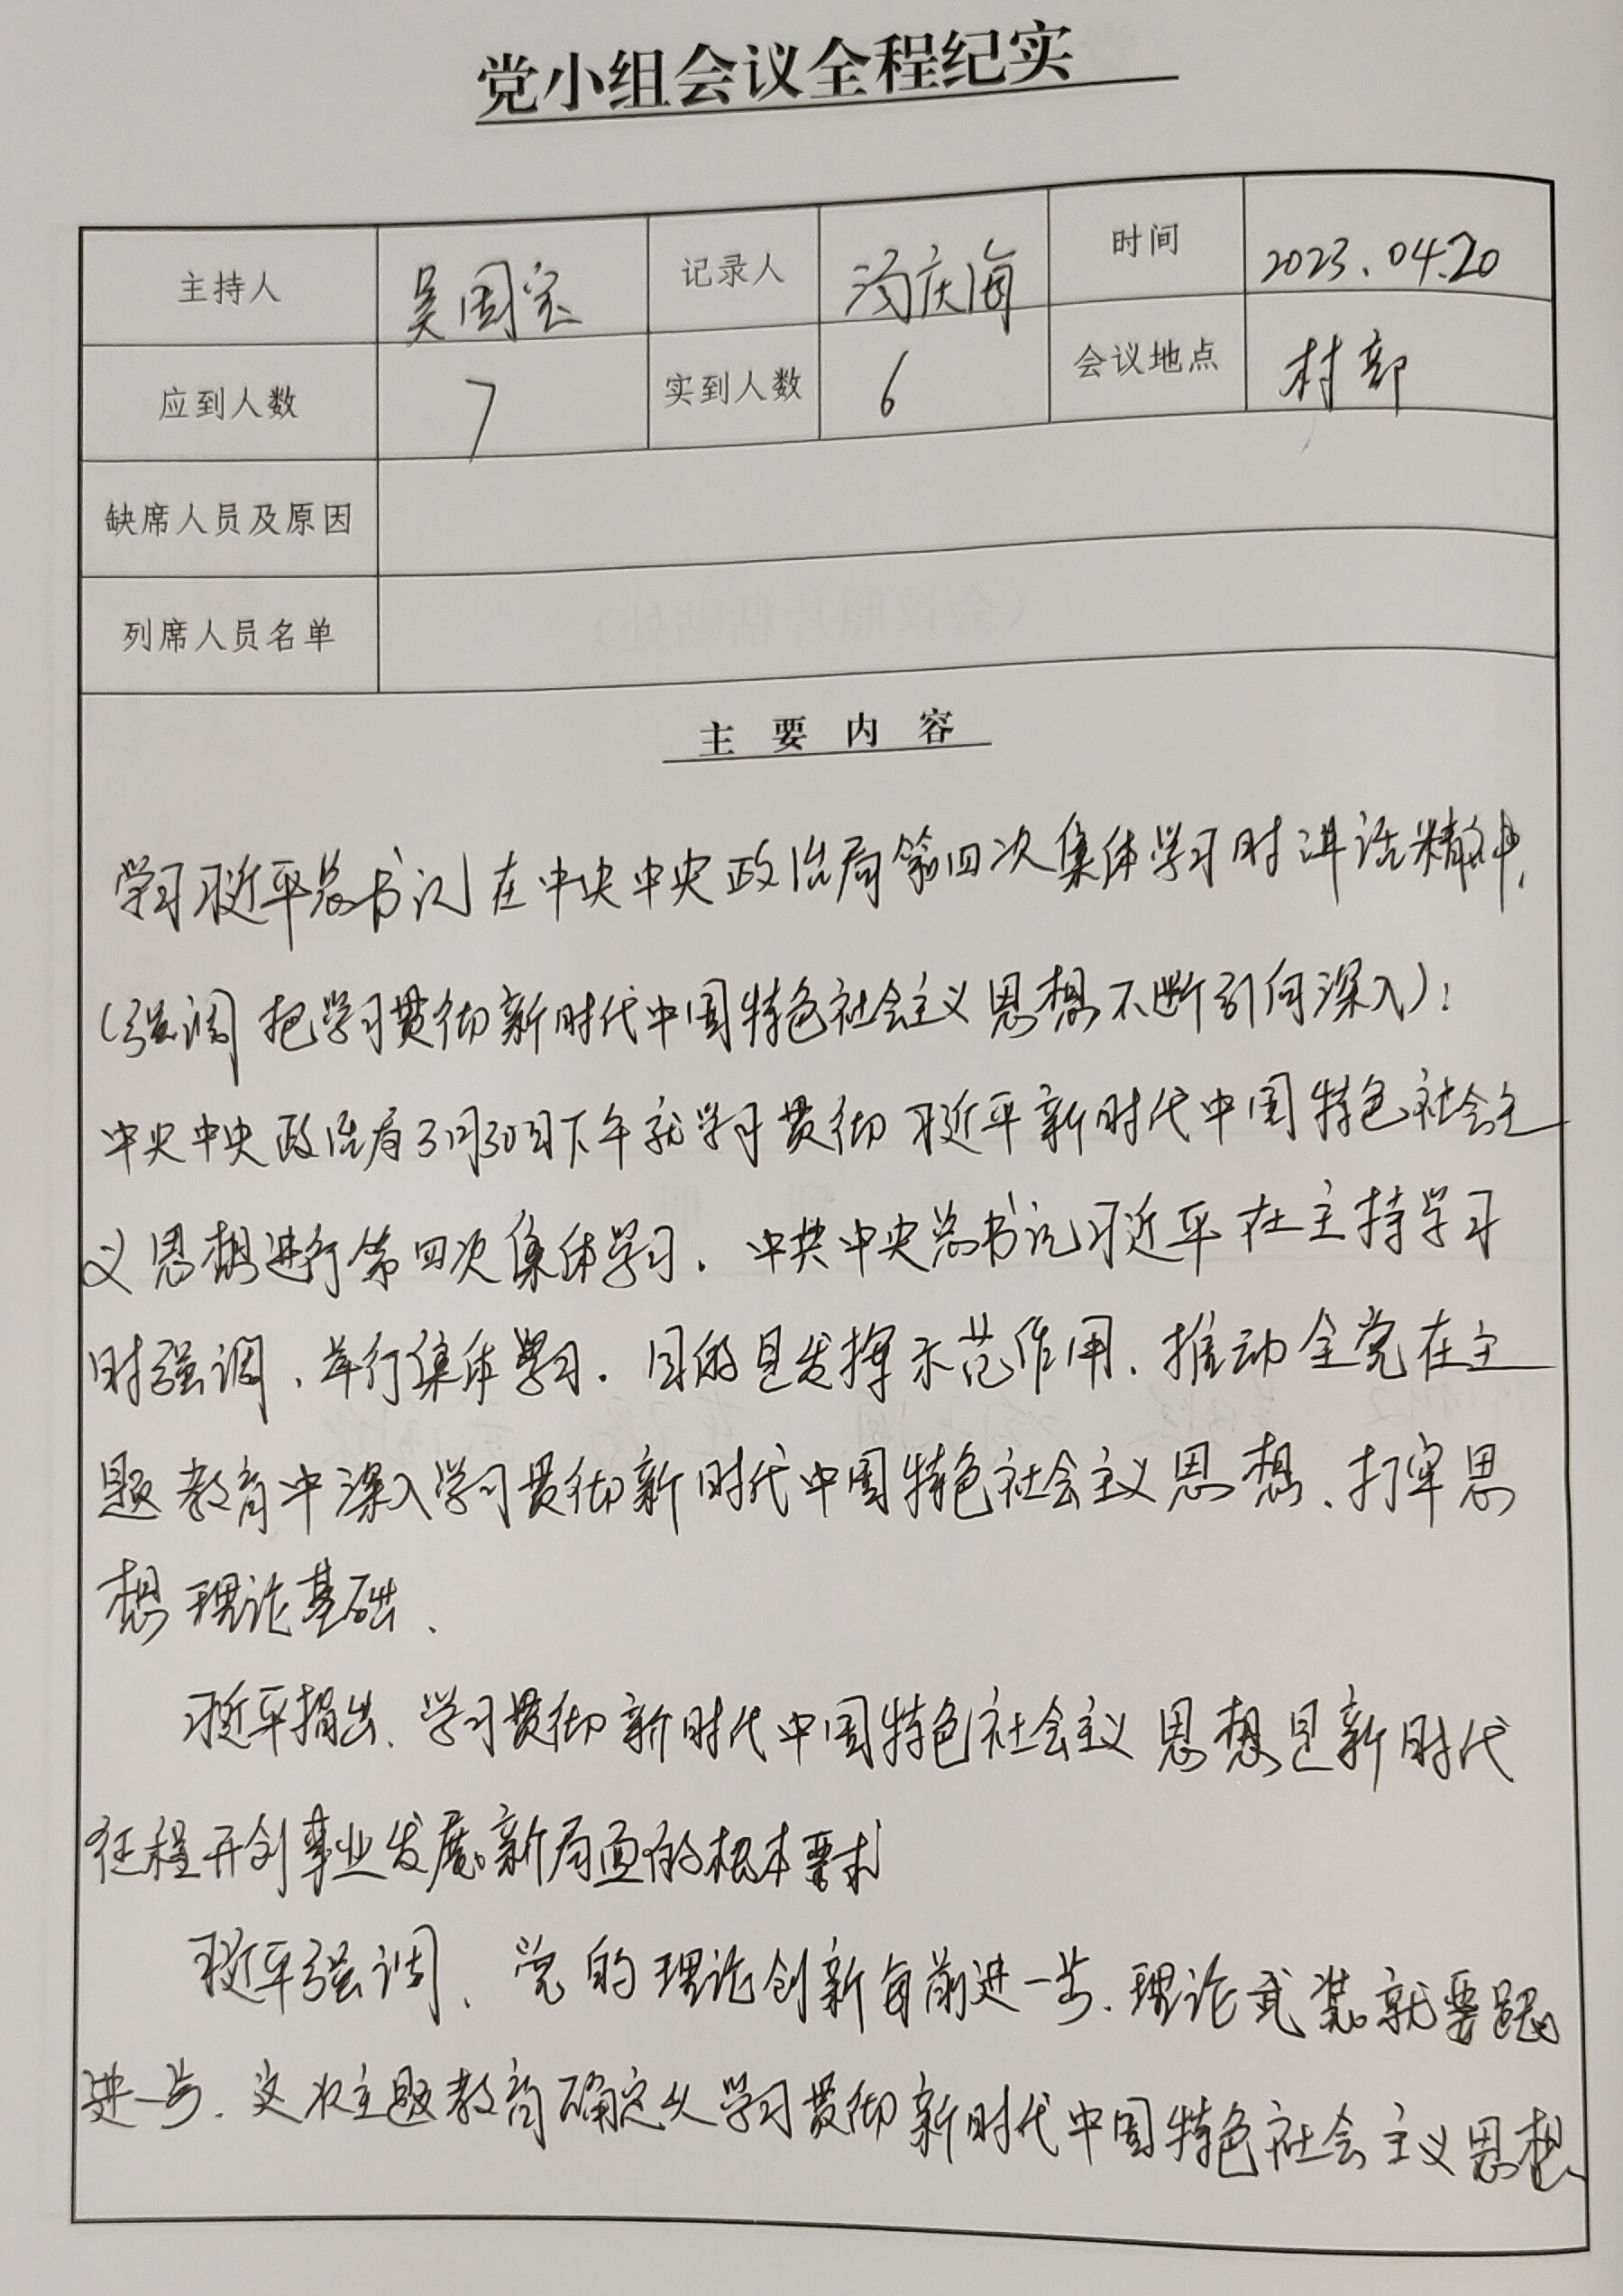 党小组会议全程纪实
主持人 吴国宝 记录人 汤庆海 时间 2023.04.20
应到人数 7 实到人数 6 会议地点 村部
缺席人员及原因
列席人员名单
主要内容
学习习近平总书记在中央中央政治局第四次集体学习时讲话精神,
(强调把学习贯彻新时代中国特色社会主义思想不断引向深入):
中央中央政治局3月30日下午就学习贯彻习近平新时代中国特色社会主
义思想进行第四次集体学习.中共中央总书记习近平在主持学习
时强调、举行集体学习.目的是发挥示范作用、推动全党在主
题教育中深入学习贯彻新时代中国特色社会主义思想、打牢思
想理论基础、
习近平指出、学习贯彻新时代中国特色社会主义思想是新时代
征程开创事业发展新局面的根本要求
习近平强调、党的理论创新每前进一步、理论武装就要跟
进一步.这次主题教育确定以学习贯彻新时代中国特色社会主义思想